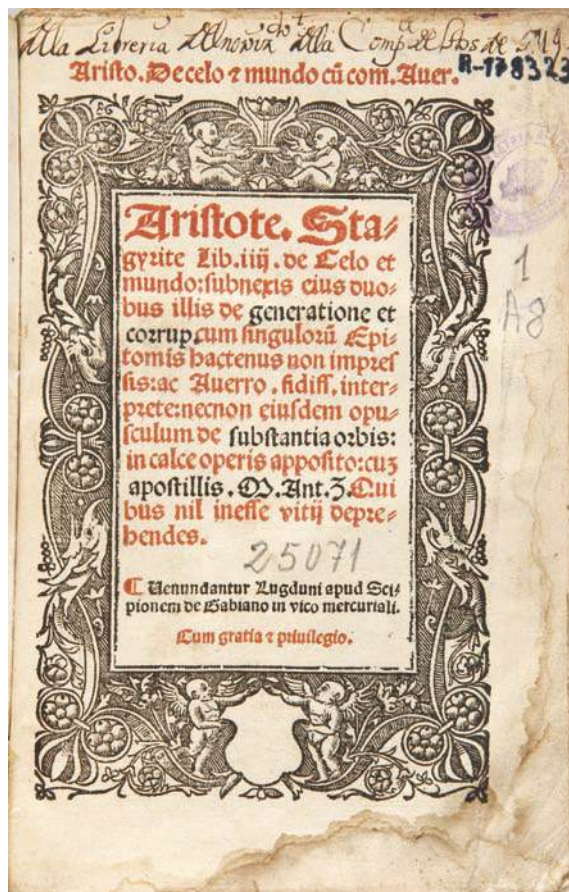 Della Libreria del
Aristo. De celo ⁊ mundo cũ com. Auer.
R-178323
1
A8
Aristote. Sta⸗
gyrite Lib.iiij. de Celo et
mundo: subnexis eius duo⸗
bus illis de generatione et
corrup. cum singulorũ Epi⸗
tomis hactenus non impres
sis: ac Auerro. fidiss. inter⸗
prete: necnon eiusdem opu⸗
sculum de substantia orbis:
in calce operis apposito: cuꝫ
apostillis. M. Ant. Z. Qui
bus nil inesse vitij depre⸗
hendes.
25071
¶ Uenundantur Lugduni apud Sci⸗
pionem de Gabiano in vico mercuriali.
Cum gratia ⁊ priuilegio.